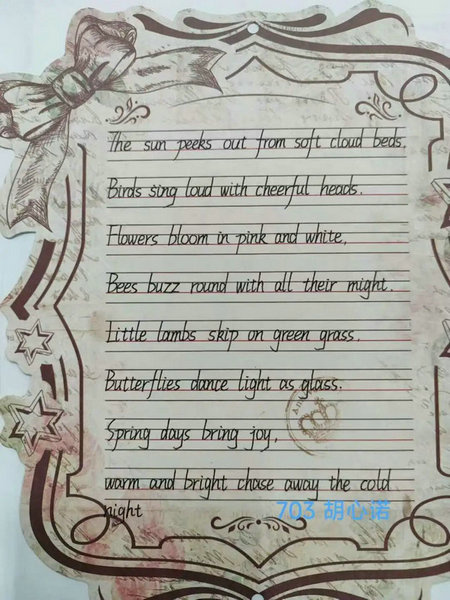 The sun peeks out from soft cloud beds.
Birds sing loud with cheerful heads.
Flowers bloom in pink and white,
Bees buzz round with all their might.
Little lambs skip on green grass.
Butterflies dance light as glass.
Spring days bring joy,
warm and bright chase away the cold
night
703 胡心诺